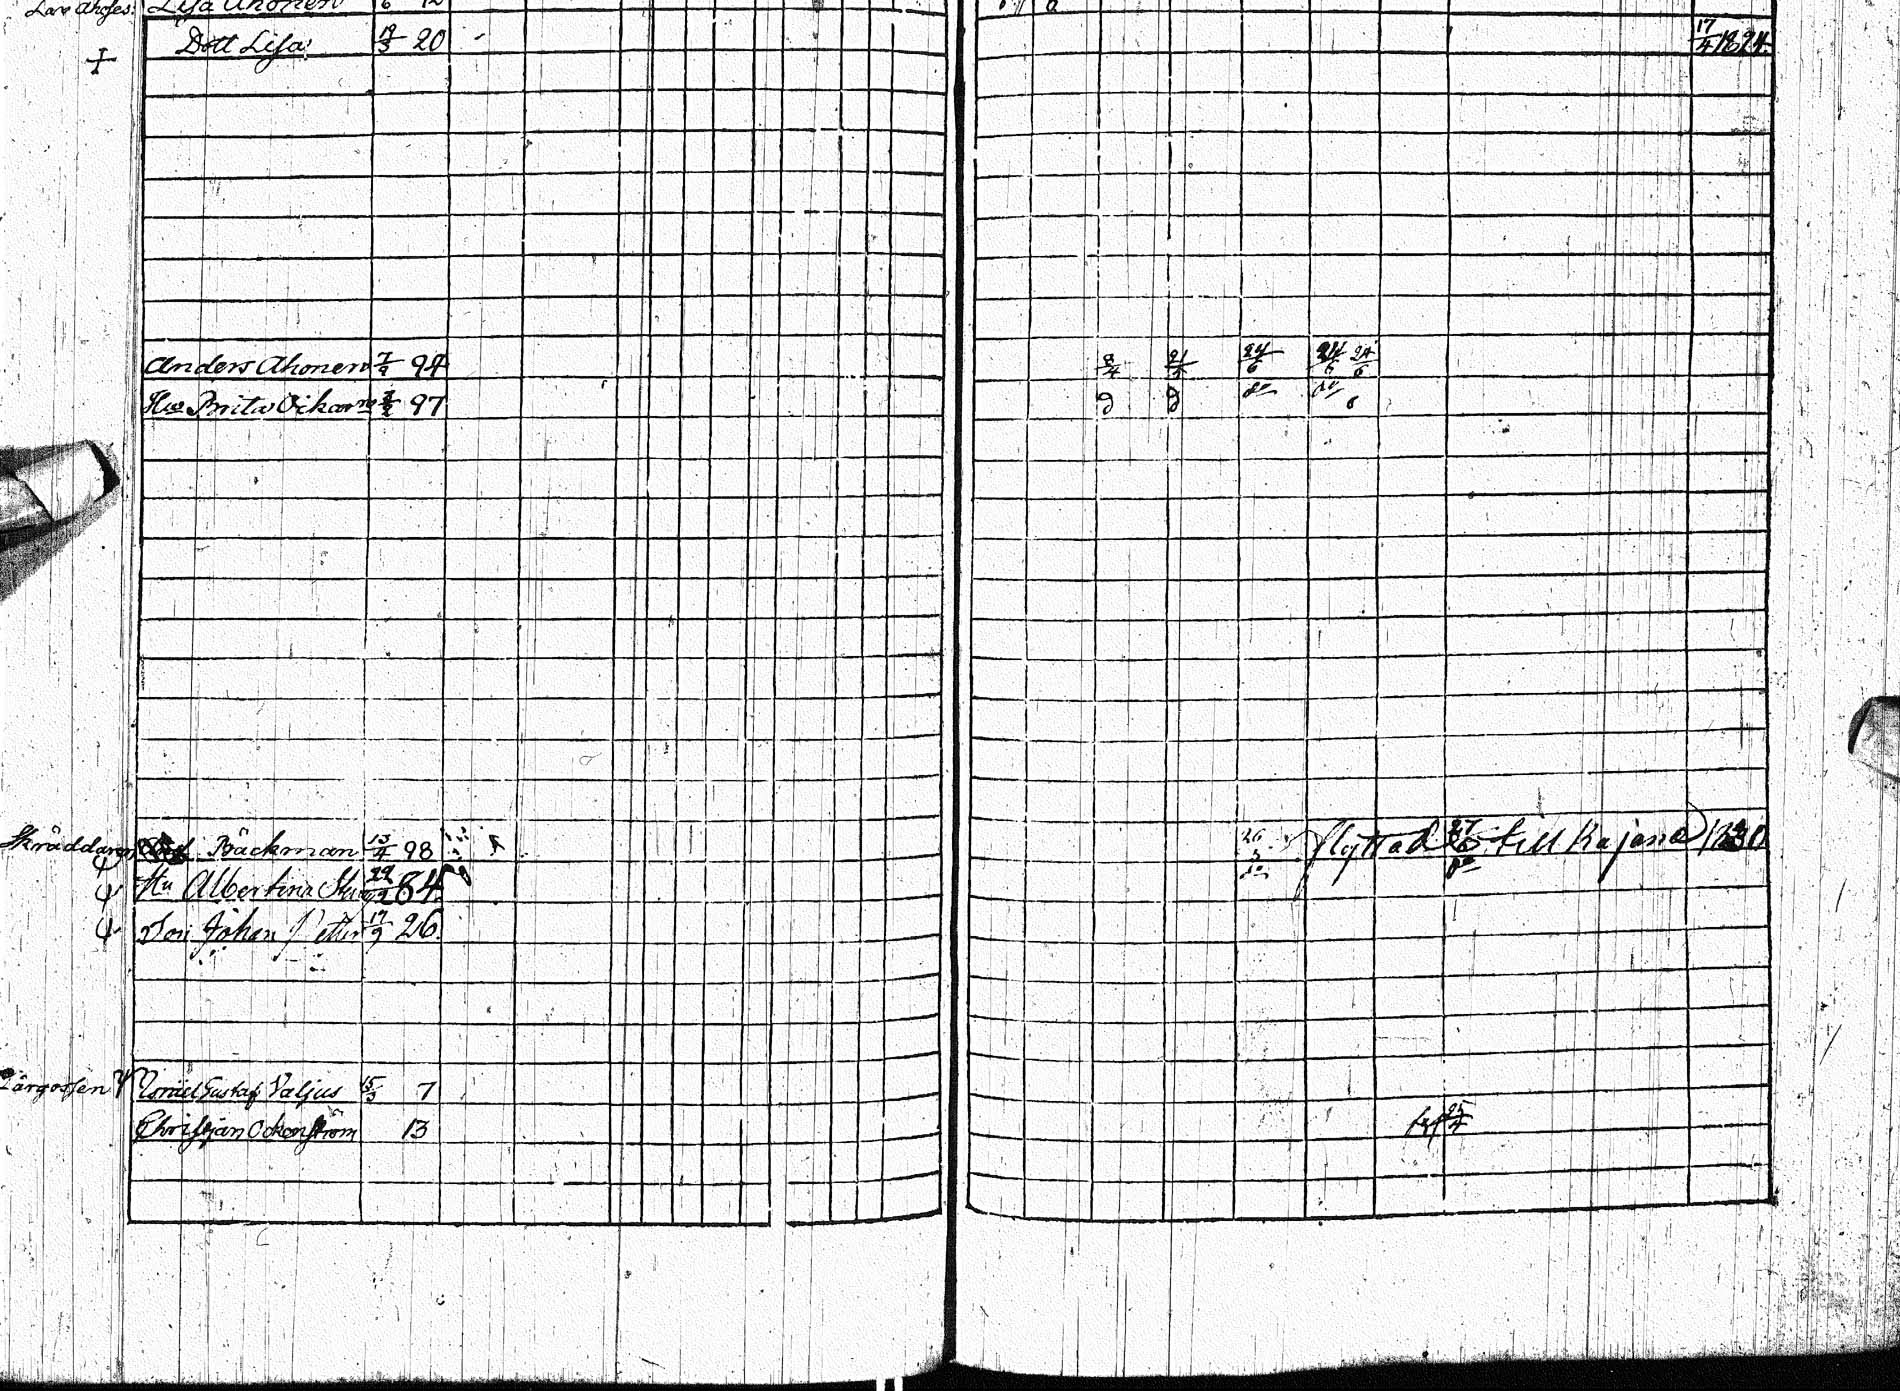 Lisa Ahonen
Dott Lisa 19/3 20 17/4 1824
Anders Ahonen 7/9 94 8/4 21/5 24/6 24/6 24/6
Hu Brita Oikar 97 do do
Skräddaren Bäckman 13/4 98 26/5 flyttad till Kajana 1830
Hu Albertina 84 do do
Son Johan Petter 17/9 26
Lärgossen Israel Gustaf Valjus 15/3 7
Christjan Ockenström 13 25/4